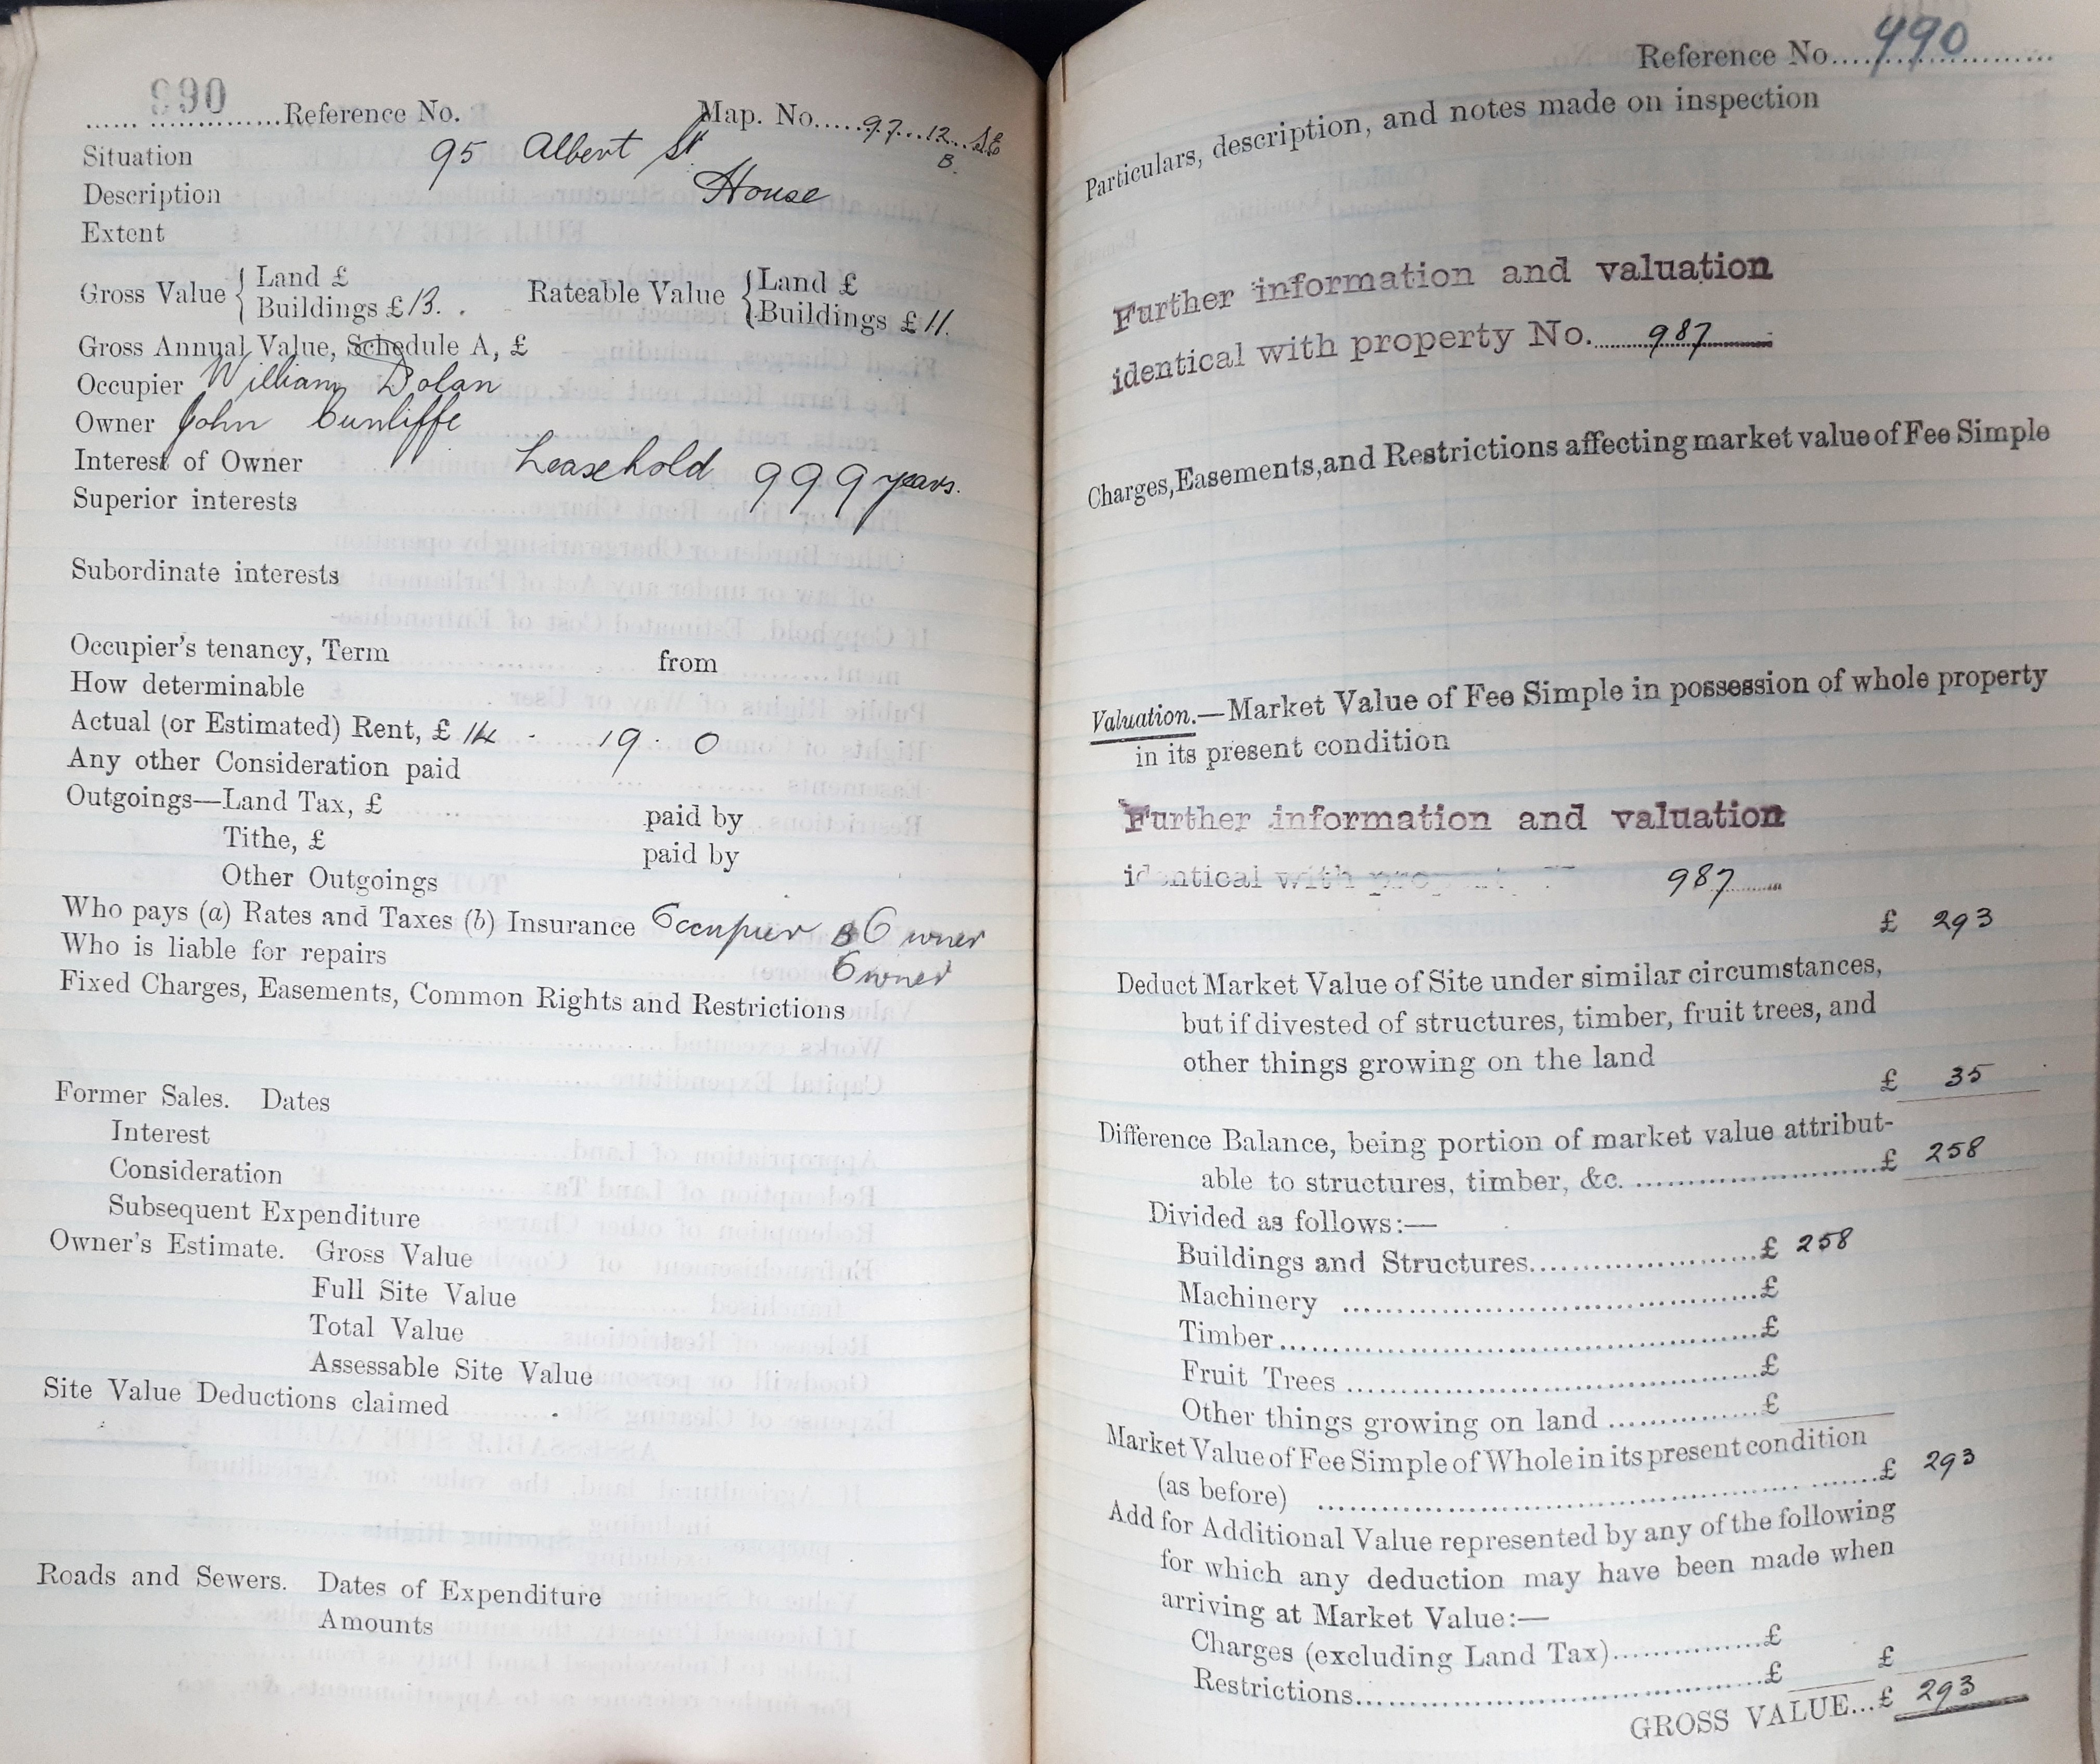 990
...... ...............Reference No. Map. No.....97...12...SE
B.
Situation 95 Albert St
Description House
Extent
Gross Value { Land £
Buildings £13. Rateable Value { Land £
Buildings £ 11.
Gross Annual Value, Schedule A, £
Occupier William Dolan
Owner John Cunliffe
Interest of Owner Leasehold 999 years.
Superior interests
Subordinate interests
Occupier's tenancy, Term from
How determinable
Actual (or Estimated) Rent, £ 14 - 19 . 0
Any other Consideration paid
Outgoings—Land Tax, £ paid by
Tithe, £ paid by
Other Outgoings
Who pays (a) Rates and Taxes (b) Insurance Occupier B Owner
Who is liable for repairs Owner
Fixed Charges, Easements, Common Rights and Restrictions
Former Sales. Dates
Interest
Consideration
Subsequent Expenditure
Owner's Estimate. Gross Value
Full Site Value
Total Value
Assessable Site Value
Site Value Deductions claimed
Roads and Sewers. Dates of Expenditure
Amounts
Reference No....490
Particulars, description, and notes made on inspection
Further information and valuation
identical with property No. 987
Charges, Easements, and Restrictions affecting market value of Fee Simple
Valuation.—Market Value of Fee Simple in possession of whole property
in its present condition
Further information and valuation
identical with 987
£ 293
Deduct Market Value of Site under similar circumstances,
but if divested of structures, timber, fruit trees, and
other things growing on the land
£ 35
Difference Balance, being portion of market value attribut-
able to structures, timber, &c. ........................£ 258
Divided as follows:—
Buildings and Structures.....................£ 258
Machinery .....................................£
Timber............................................£
Fruit Trees .....................................£
Other things growing on land ...............£
Market Value of Fee Simple of Whole in its present condition
(as before) ..................................................£ 293
Add for Additional Value represented by any of the following
for which any deduction may have been made when
arriving at Market Value:—
Charges (excluding Land Tax)...............£
Restrictions.....................................£ £
GROSS VALUE...£ 293